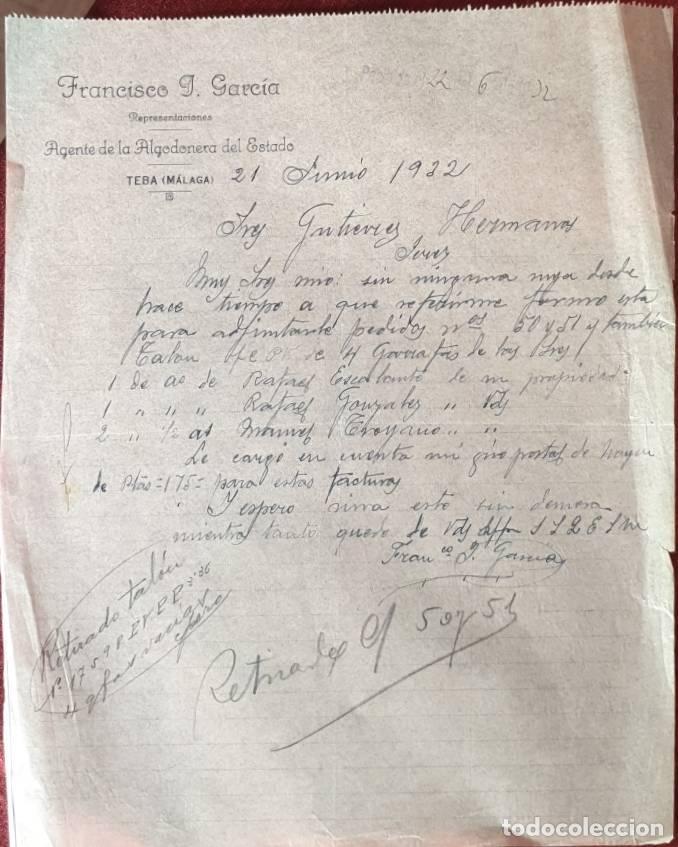 Francisco J. García
Representaciones
Agente de la Algodonera del Estado
TEBA (MÁLAGA) 21 Junio 1932
22 6 32
Sres Gutierrez Hermanos
Jerez
Muy Sres mio: sin ninguna suya desde
hace tiempo a que referirme tormo esta
para adjuntarle pedidos nos 50 y 51 y tambien
Talon de 4 Garrafas de los Sres
1 de ao de Rafael Escalante de su propiedad
1 " " " Rafael Gonzalez " Vds
2 " 1/2 ao Manuel Troyano " "
Le cargo en cuenta mi giro postal de
de Ptas = 175 = para estas facturas
Y espero sirva este sin demora
mientra tanto quedo de Vds
Franco J. Garcia
Retirado talón
4 vacias
Retirados 50 y 51
todocoleccion